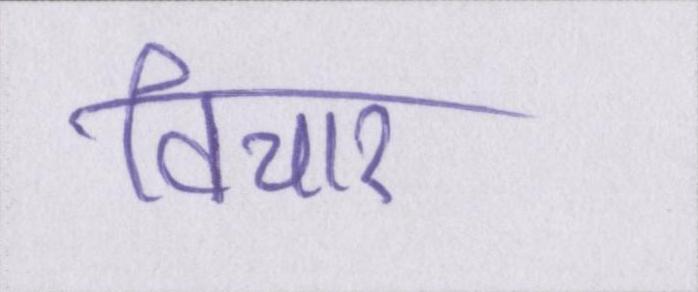 विचार